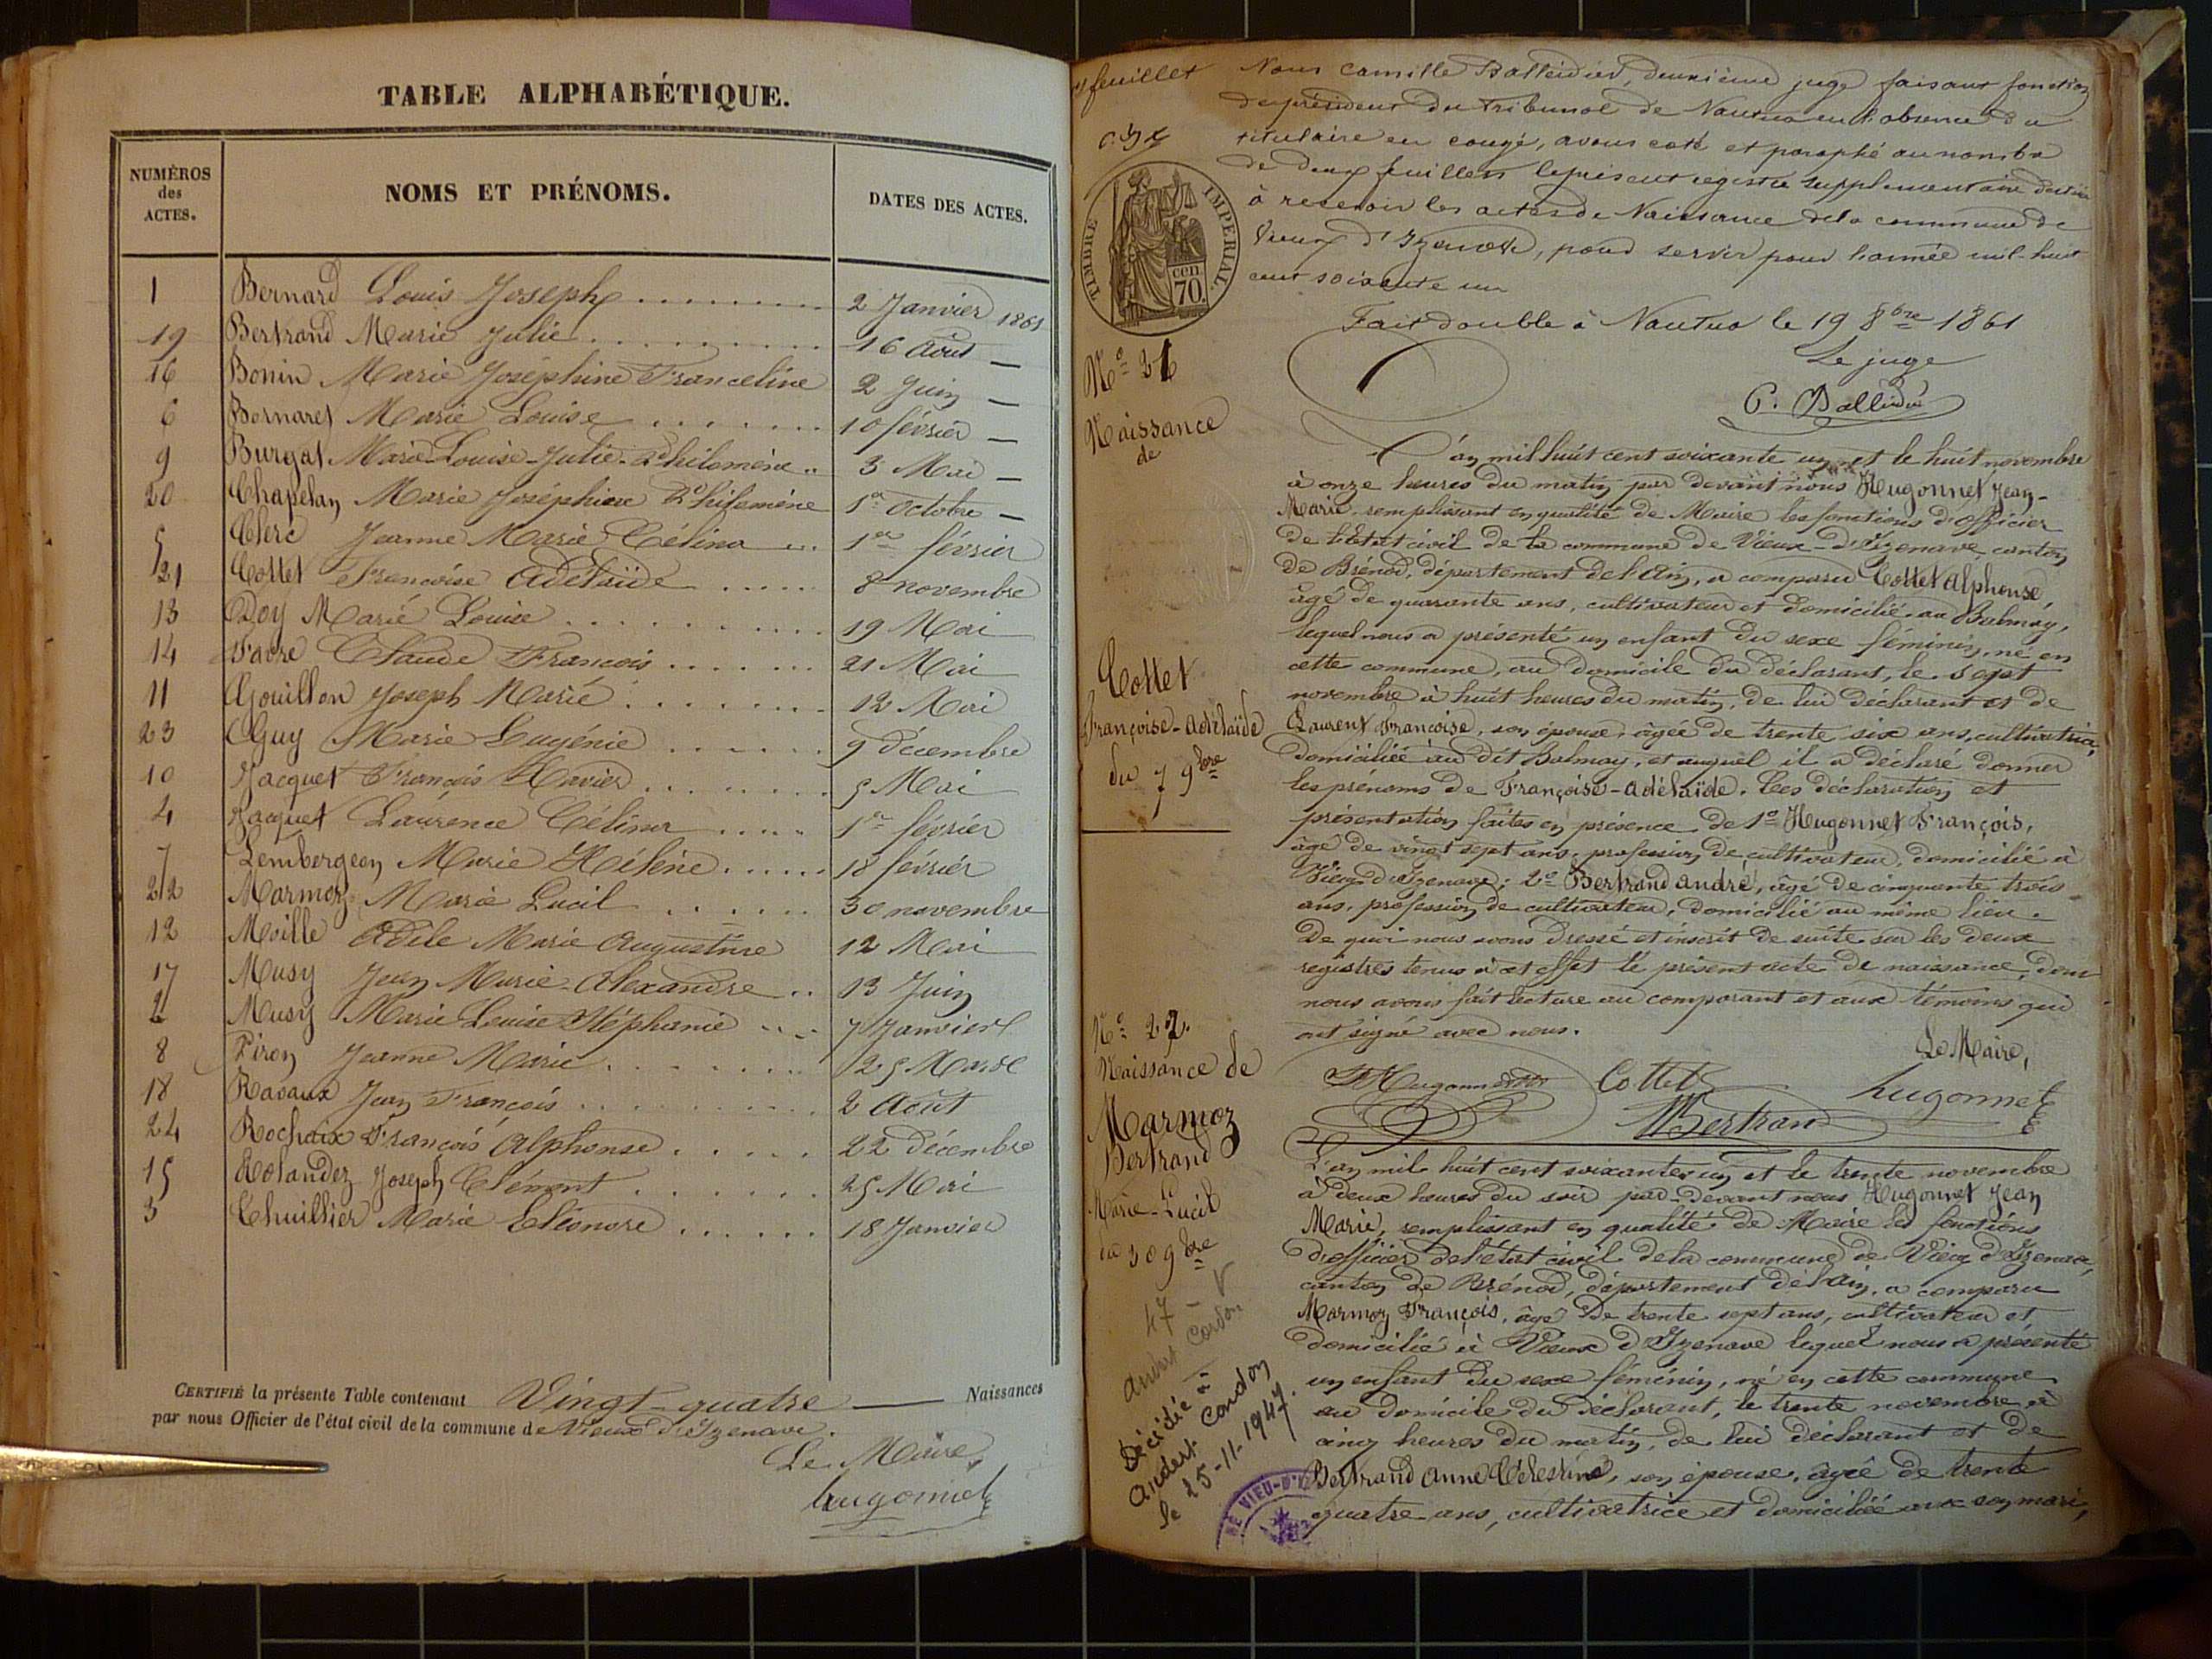 TABLE ALPHABÉTIQUE.
NUMÉROS des ACTES.
NOMS ET PRÉNOMS.
DATES DES ACTES.
1 Bernard Louis Joseph 2 Janvier 1861
19 Bertrand Marie Julie 16 Août —
16 Bonin Marie Joséphine Franceline 2 Juin —
6 Bornaret Marie Louise 10 février —
9 Burgat Marie-Louise-Julie-Philomène 3 Mai —
20 Chapelan Marie Joséphine Philomène 1er Octobre —
5 Clerc Jeanne Marie Célina 1er février
21 Cottet Françoise Adélaïde 8 novembre
13 Doy Marie Louise 19 Mai
14 Favre Claude François 21 Mai
11 Gouillon Joseph Marie 12 Mai
23 Guy Marie Eugénie 9 décembre
10 Jacquet François Xavier 5 Mai
4 Jacquet Laurence Célina 1er février
7 Lembergeon Marie Hélène 18 février
22 Marmoz Marie Lucil 30 novembre
12 Moille Adèle Marie Augustine 12 Mai
17 Musy Jean Marie-Alexandre 13 Juin
2 Musy Marie Louise Stéphanie 7 Janvier
8 Piron Jeanne Marie 25 Mars
18 Ravaux Jean François 2 Août
24 Rochaix François Alphonse 22 décembre
15 Rolandez Joseph Clément 25 Mai
3 Thuillier Marie Eléonore 18 Janvier
CERTIFIÉ la présente Table contenant Vingt-quatre — Naissances
par nous Officier de l'état civil de la commune de Vieux d'Izenave.
Le Maire,
hugonnet
feuillet
Nous Camille Balleidier, deuxième juge faisant fonction
de président du tribunal de Nantua en l'absence du
titulaire en congé, avons coté et paraphé au nombre
de deux feuillets le présent registre supplémentaire destiné
à recevoir les actes de Naissance de la commune de
Vieux d'Izenave, pour servir pour l'année mil-huit
cent soixante un
TIMBRE IMPERIAL.
cen. 70.
Fait double à Nantua le 19 8bre 1861
Le juge
C. Balleidier
No 21
Naissance
de
Cottet
Françoise-Adélaïde
du 7 9bre
L'an mil huit cent soixante un et le huit novembre
à onze heures du matin par devant nous Hugonnet Jean-
Marie remplissant en qualité de Maire les fonctions d'officier
de l'état civil de la commune de Vieux-d'Izenave canton
de Brénod, département de l'Ain, a comparu Cottet Alphonse,
âgé de quarante ans, cultivateur et domicilié au Balmay,
lequel nous a présenté un enfant du sexe féminin, né en
cette commune, au domicile du déclarant, le sept
novembre à huit heures du matin, de lui déclarant et de
Laurent Françoise, son épouse, âgée de trente six ans, cultivatrice,
domiciliée au dit Balmay, et auquel il a déclaré donner
les prénoms de Françoise-Adélaïde. Les déclaration et
présentation faites en présence de 1o Hugonnet François,
âgé de vingt sept ans, profession de cultivateur, domicilié à
Vieux d'Izenave; 2o Bertrand André, âgé de cinquante trois
ans, profession de cultivateur, domicilié au même lieu.
De quoi nous avons dressé et inscrit de suite sur les deux
registres tenus à cet effet le présent acte de naissance, dont
nous avons fait lecture au comparant et aux témoins qui
ont signé avec nous.
Le Maire,
Hugonnet Cottet hugonnet
Bertrand
No 22.
Naissance de
Marmoz
Bertrand
Marie-Lucil
du 30 9bre
Décédée à
Andert Condon
le 25-11-1947.
L'an mil huit cent soixante un et le trente novembre
à deux heures du soir par-devant nous Hugonnet Jean
Marie, remplissant en qualité de Maire les fonctions
d'officier de l'état civil de la commune de Vieux d'Izenave,
canton de Brénod, département de l'ain, a comparu
Marmoz François, âgé de trente sept ans, cultivateur et
domicilié à Vieux d'Izenave lequel nous a présenté
un enfant du sexe féminin, né en cette commune
au domicile du déclarant, le trente novembre, à
cinq heures du matin, de lui déclarant et de
Bertrand Anne Célestine, son épouse, âgée de trente
quatre ans, cultivatrice et domiciliée avec son mari,